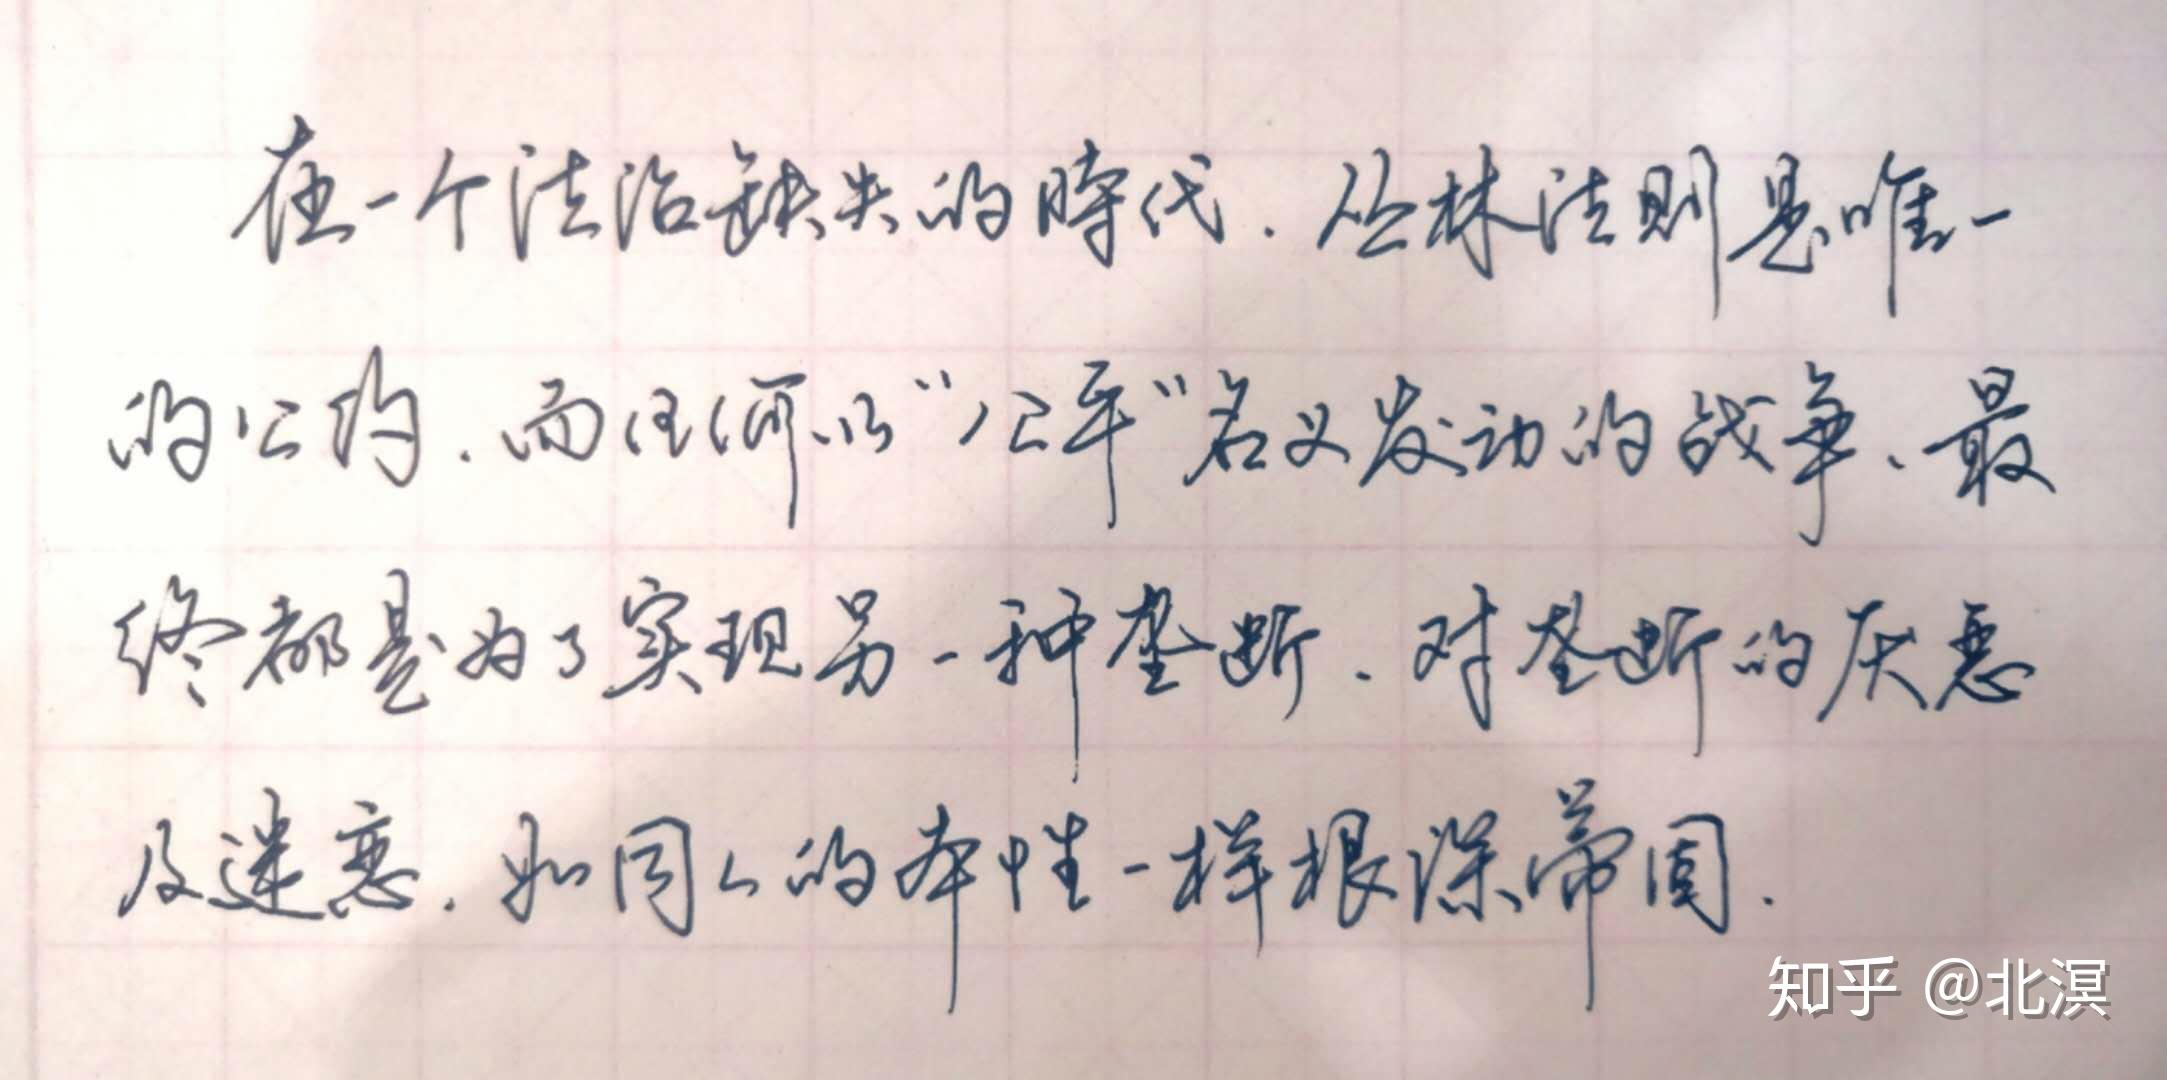 在一个法治缺失的時代.丛林法则是唯一
的公约.而任何以“公平”名义发动的战争、最
终都是为了实现另一种垄断.对垄断的厌恶
及迷恋.如同人的本性一样根深蒂固.
知乎 @北溟